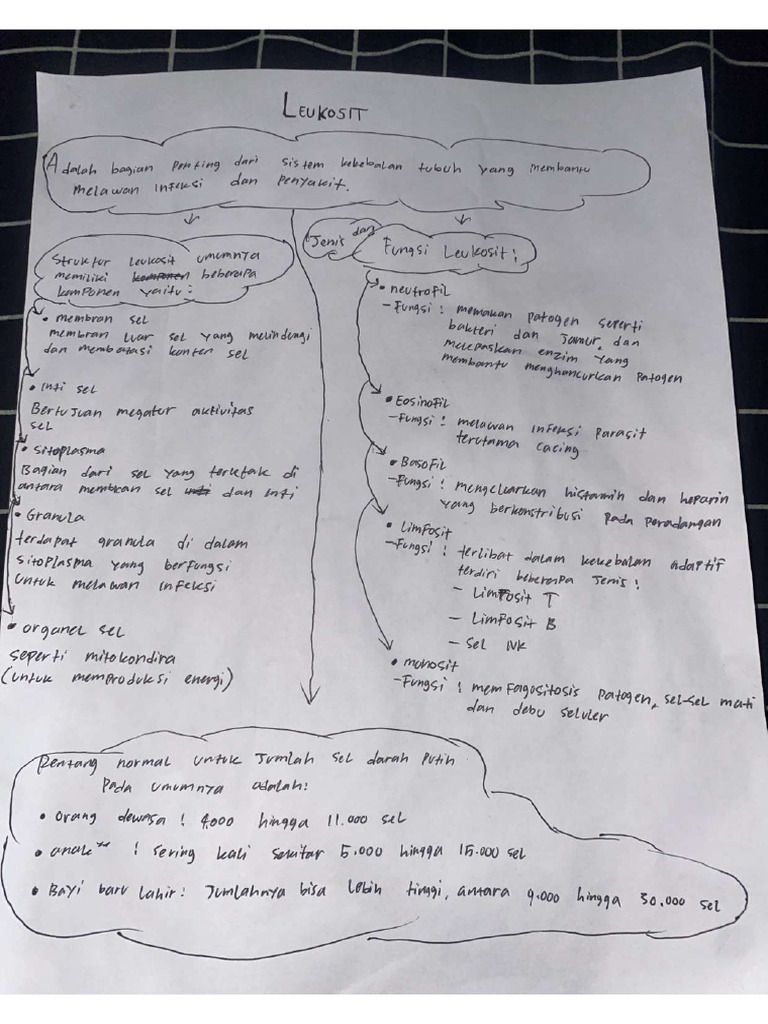 LEUKOSIT
Adalah bagian penting dari sistem kekebalan tubuh yang membantu
melawan infeksi dan penyakit.
Struktur leukosit umumnya
memiliki komponen beberapa
komponen yaitu:
• membran sel
membran luar sel yang melindungi
dan membatasi konten sel
• Inti sel
Bertujuan megatur aktivitas
sel
• Sitoplasma
Bagian dari sel yang terletak di
antara membran sel inti dan inti
• Granula
terdapat granula di dalam
sitoplasma yang berfungsi
untuk melawan infeksi
• organel sel
seperti mitokondira
(untuk memproduksi energi)
Jenis dan Fungsi Leukosit:
• neutrofil
- Fungsi : memakan patogen seperti
bakteri dan jamur, dan
melepaskan enzim yang
membantu menghancurkan patogen
• Eosinofil
- Fungsi : melawan infeksi parasit
terutama cacing
• Basofil
- Fungsi : mengeluarkan histamin dan heparin
yang berkonstribusi pada peradangan
• Limfosit
- Fungsi : terlibat dalam kekebalan adaptif
terdiri beberapa jenis :
- Limfosit T
- Limfosit B
- Sel NK
• monosit
- Fungsi : memfagositosis patogen, sel-sel mati
dan debu seluler
Rentang normal untuk jumlah sel darah putih
pada umumnya adalah:
• Orang dewasa : 4.000 hingga 11.000 sel
• anak" : sering kali sekitar 5.000 hingga 15.000 sel
• Bayi baru lahir : jumlahnya bisa lebih tinggi, antara 9.000 hingga 30.000 sel